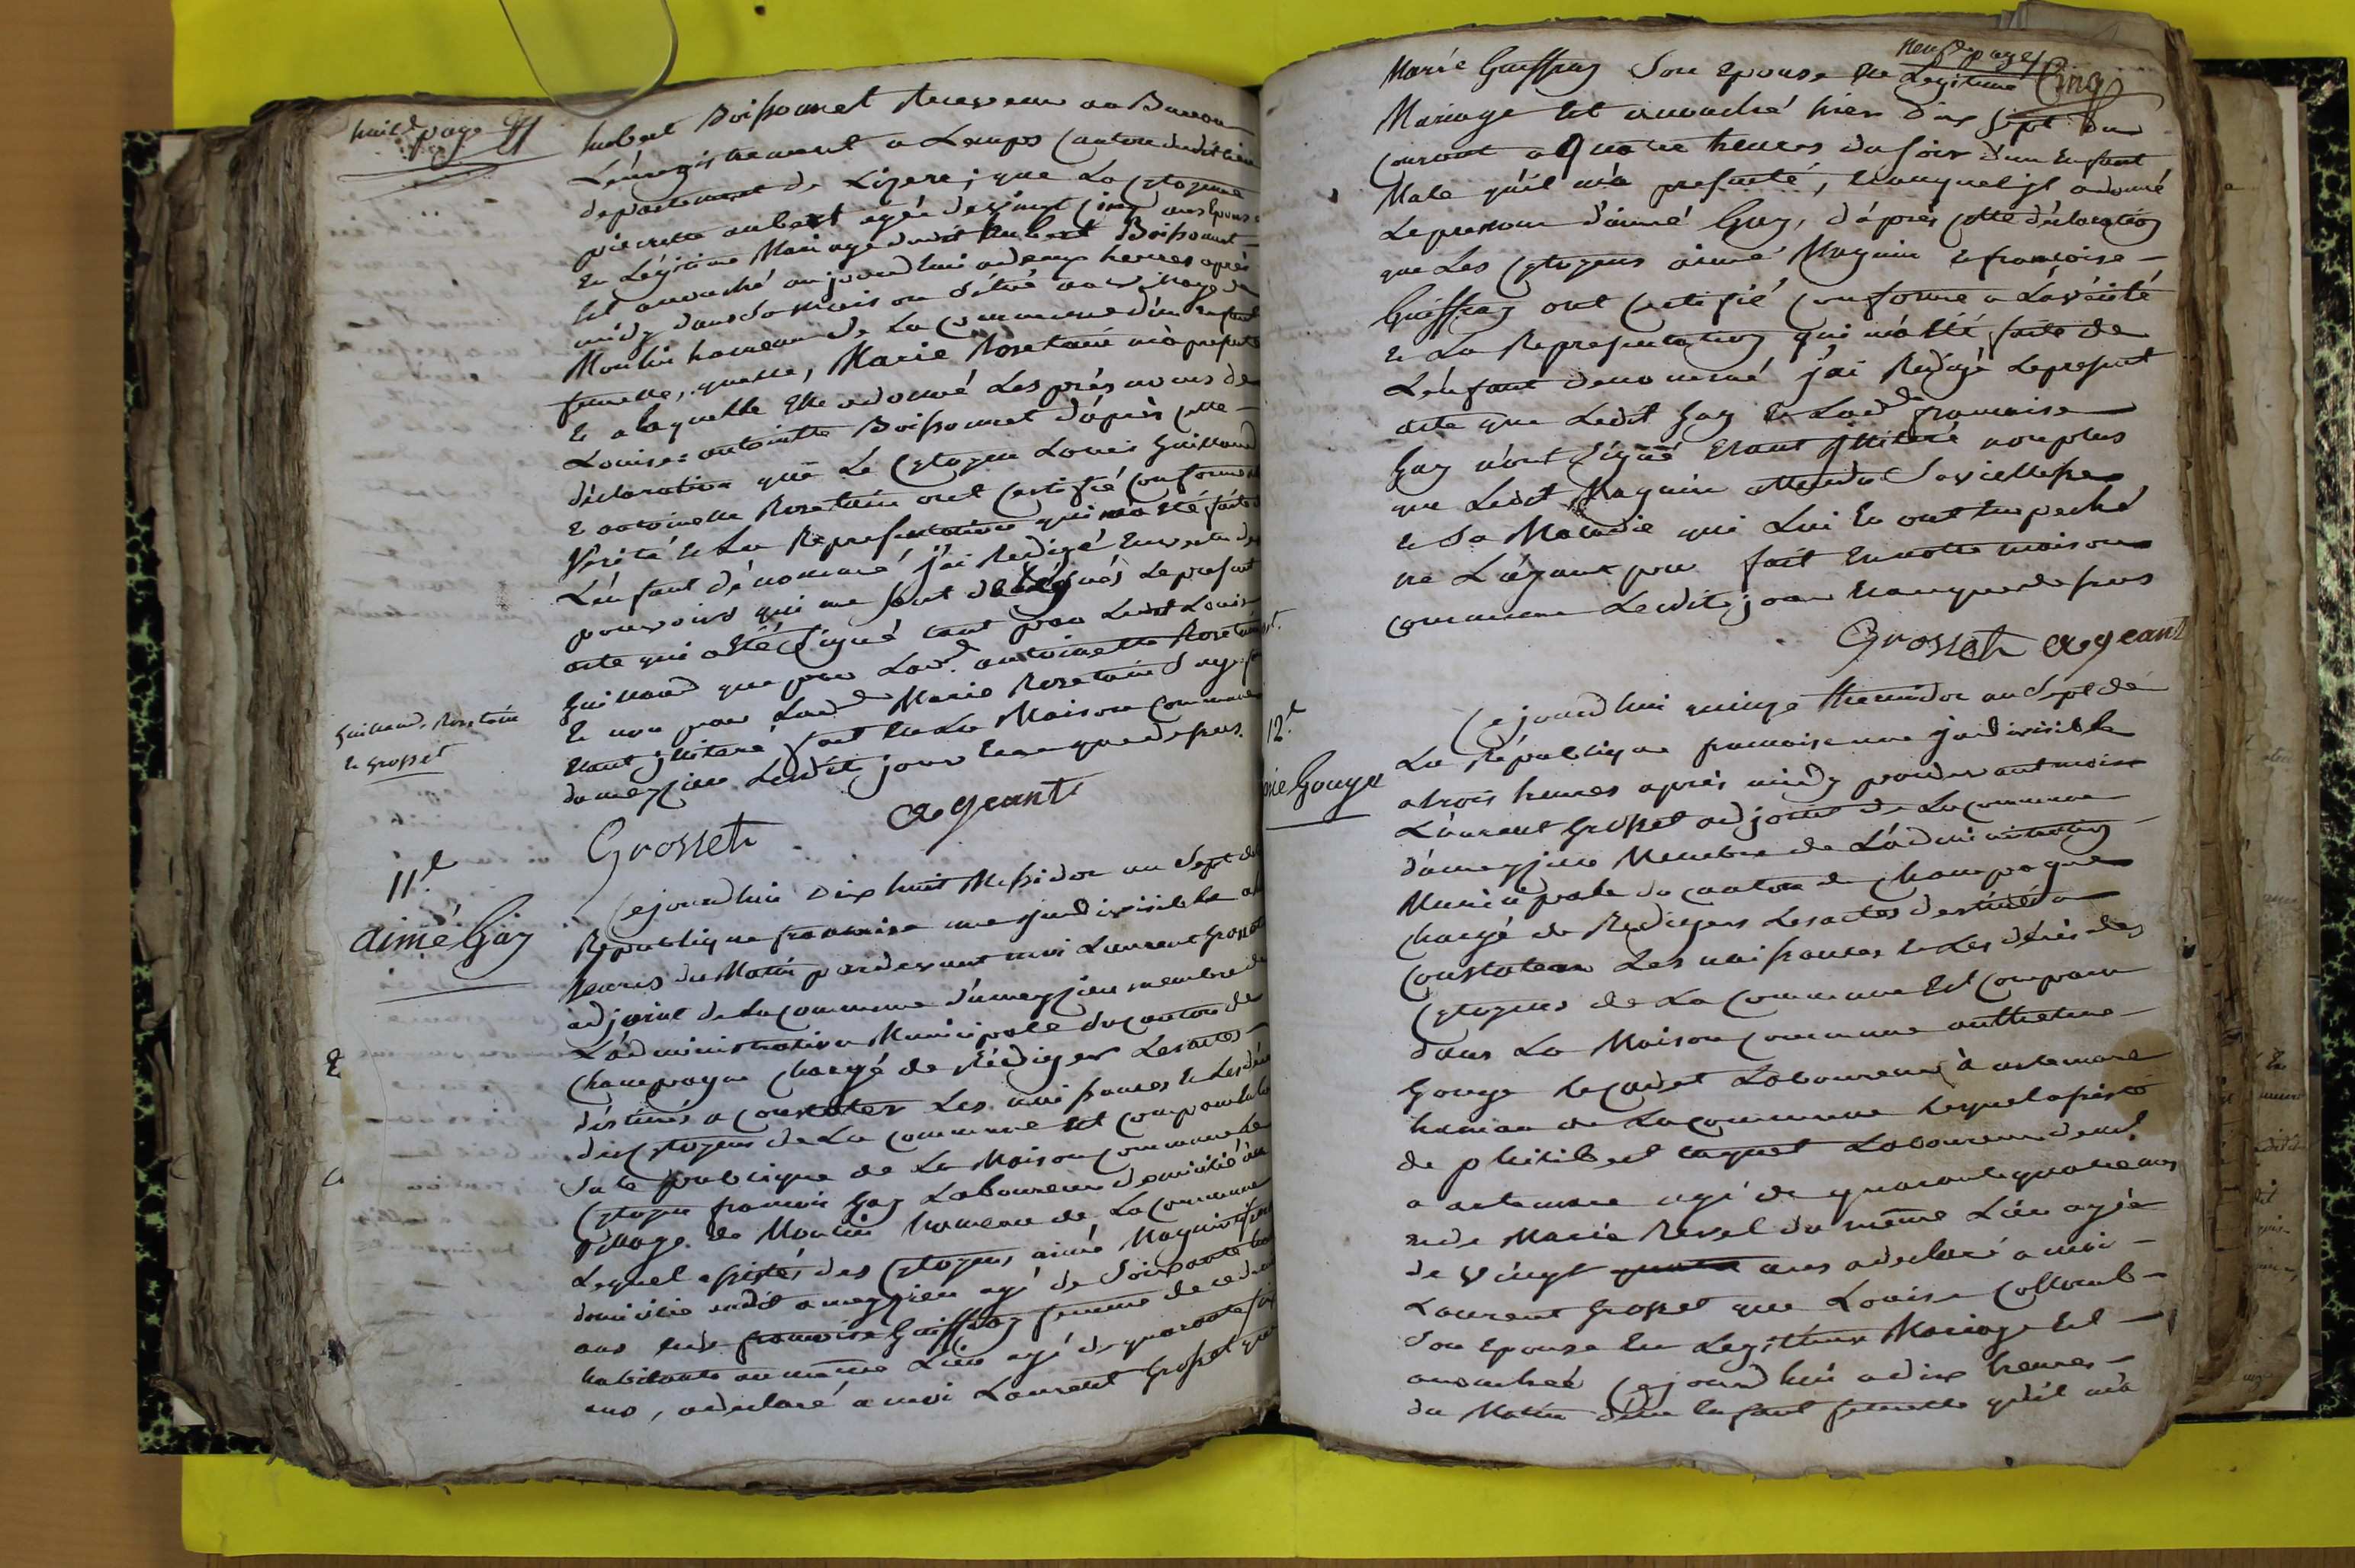 huit.e page
hubert Boissonnet Receveur au Bureau
L'enregistrement a Lemps Canton dudit lieu
departement de Lizere ; que La Cytoyenne
pierrette aubert agée de vingt cinq ans Epouse
En Légitime Mariage dudit hubert Boissonnet
Est accouché aujourdhui a deux heures après
midy dans sa maison située au village de
Moulin hameau de La Commune d'un Enfant
femelle, quelle, Marie Rosetain m'a presenté
Et a laquelle Elle a donné Les prés noms de
Louise = antoinette Boissonnet d'après cette
déclaration que Le Cytoyen Louis Guillaud
Et antoinette Rosetain ont Certifié conforme
Vérité Et La Représentation qui m'a été faite
L'énfant dénommé j'ai Redigé En vertu des
pouvoirs qui me sont délégués Le présent
acte qui a été Signé tant par Ledit Louis
Guillaud que par Lad.e antoinette Rosetain
Et non par Lad.e Marie Rosetain
Etant jllitaré fait En La Maison Commune
damezieu Ledit jour Et an que dessus.
Guillaud, Rosetain
Et Grosset
Grosset ageant
11.e
aimé Gay
Cejourdhui dix huit Messidor an Sept de
République francaise une & jndivisible
heures du Matin pardevant moi Laurent Grosset
adjoint de La Commune d'amezieu membre de
L'administration Municipale du Canton de
Champagne Chargé de Rédiger Les actes
déstinés a Constater Les naissances Et Les décès
des Cytoyens de La Commune Est comparu
Sale publique de La Maison Commune Le
Cytoyen francois Gay Laboureur domicilié au
Village de Moulin hameau de La Commune
Lequel assisté des Cytoyens aimé Magnin
domicilié audit amezieu agé de Soixante
ans Et de francoise Guiffray femme de
habitante au même Lieu agé de quarante
ans, a declaré a moi Laurent Grosset que
neuf.e page
Cinq
Marie Guiffray Son Epouse En Legitime
Mariage Est accouché hier dix sept du
Courant a quatre heures du soir d'un Enfant
Male qu'il m'a presenté, Et auquel jl a donné
Le prenom d'aimé Gay, d'après cette déclaration
que Les Cytoyens aimé Magnin Et francoise
Guiffray ont Certifié Conforme a La vérité
Et La Représentation qui m'a été faite de
L'énfant denommé j'ai Rédigé Le present
acte que Ledit Gay Et Lad.e francoise
Gay n'ont Signé Etant jllitaré non plus
que Ledit Magnin attendu Sa vielliesse
Et Sa Maladie qui Lui En ont Empeché
ne L'ayant peu fait En notre maison
Commune Ledit jour Et an que dessus
Grosset ageant
12.e
Gouge
Cejourdhui quinze thermidor an Sept de
La République francaise une jndivisible
a trois heures après midy pardevant moi
Laurent Grosset adjoint de La Commune
d'amezieu Membre de L'administration
Municipale du Canton de Champagne
Chargé de Rediger Les actes destinés a
Constater Les naissances Et Les décès des
Cytoyens de La Commune Est Comparu
dans La Maison Commune anthelme
Gouge Le Cadet Laboureur à artemare
hameau de La Commune Lequel assisté
de philibert Laboureur
a artemare agé de quarante quatre ans
Et de Marie Revel du même Lieu agée
de Vingt ans a declaré a moi
Laurent Grosset que Louise Collomb
Son Epouse En Legitime Mariage Est
accouchée Cejourdhui a dix heures
du Matin d'un Enfant femelle qu'il m'a